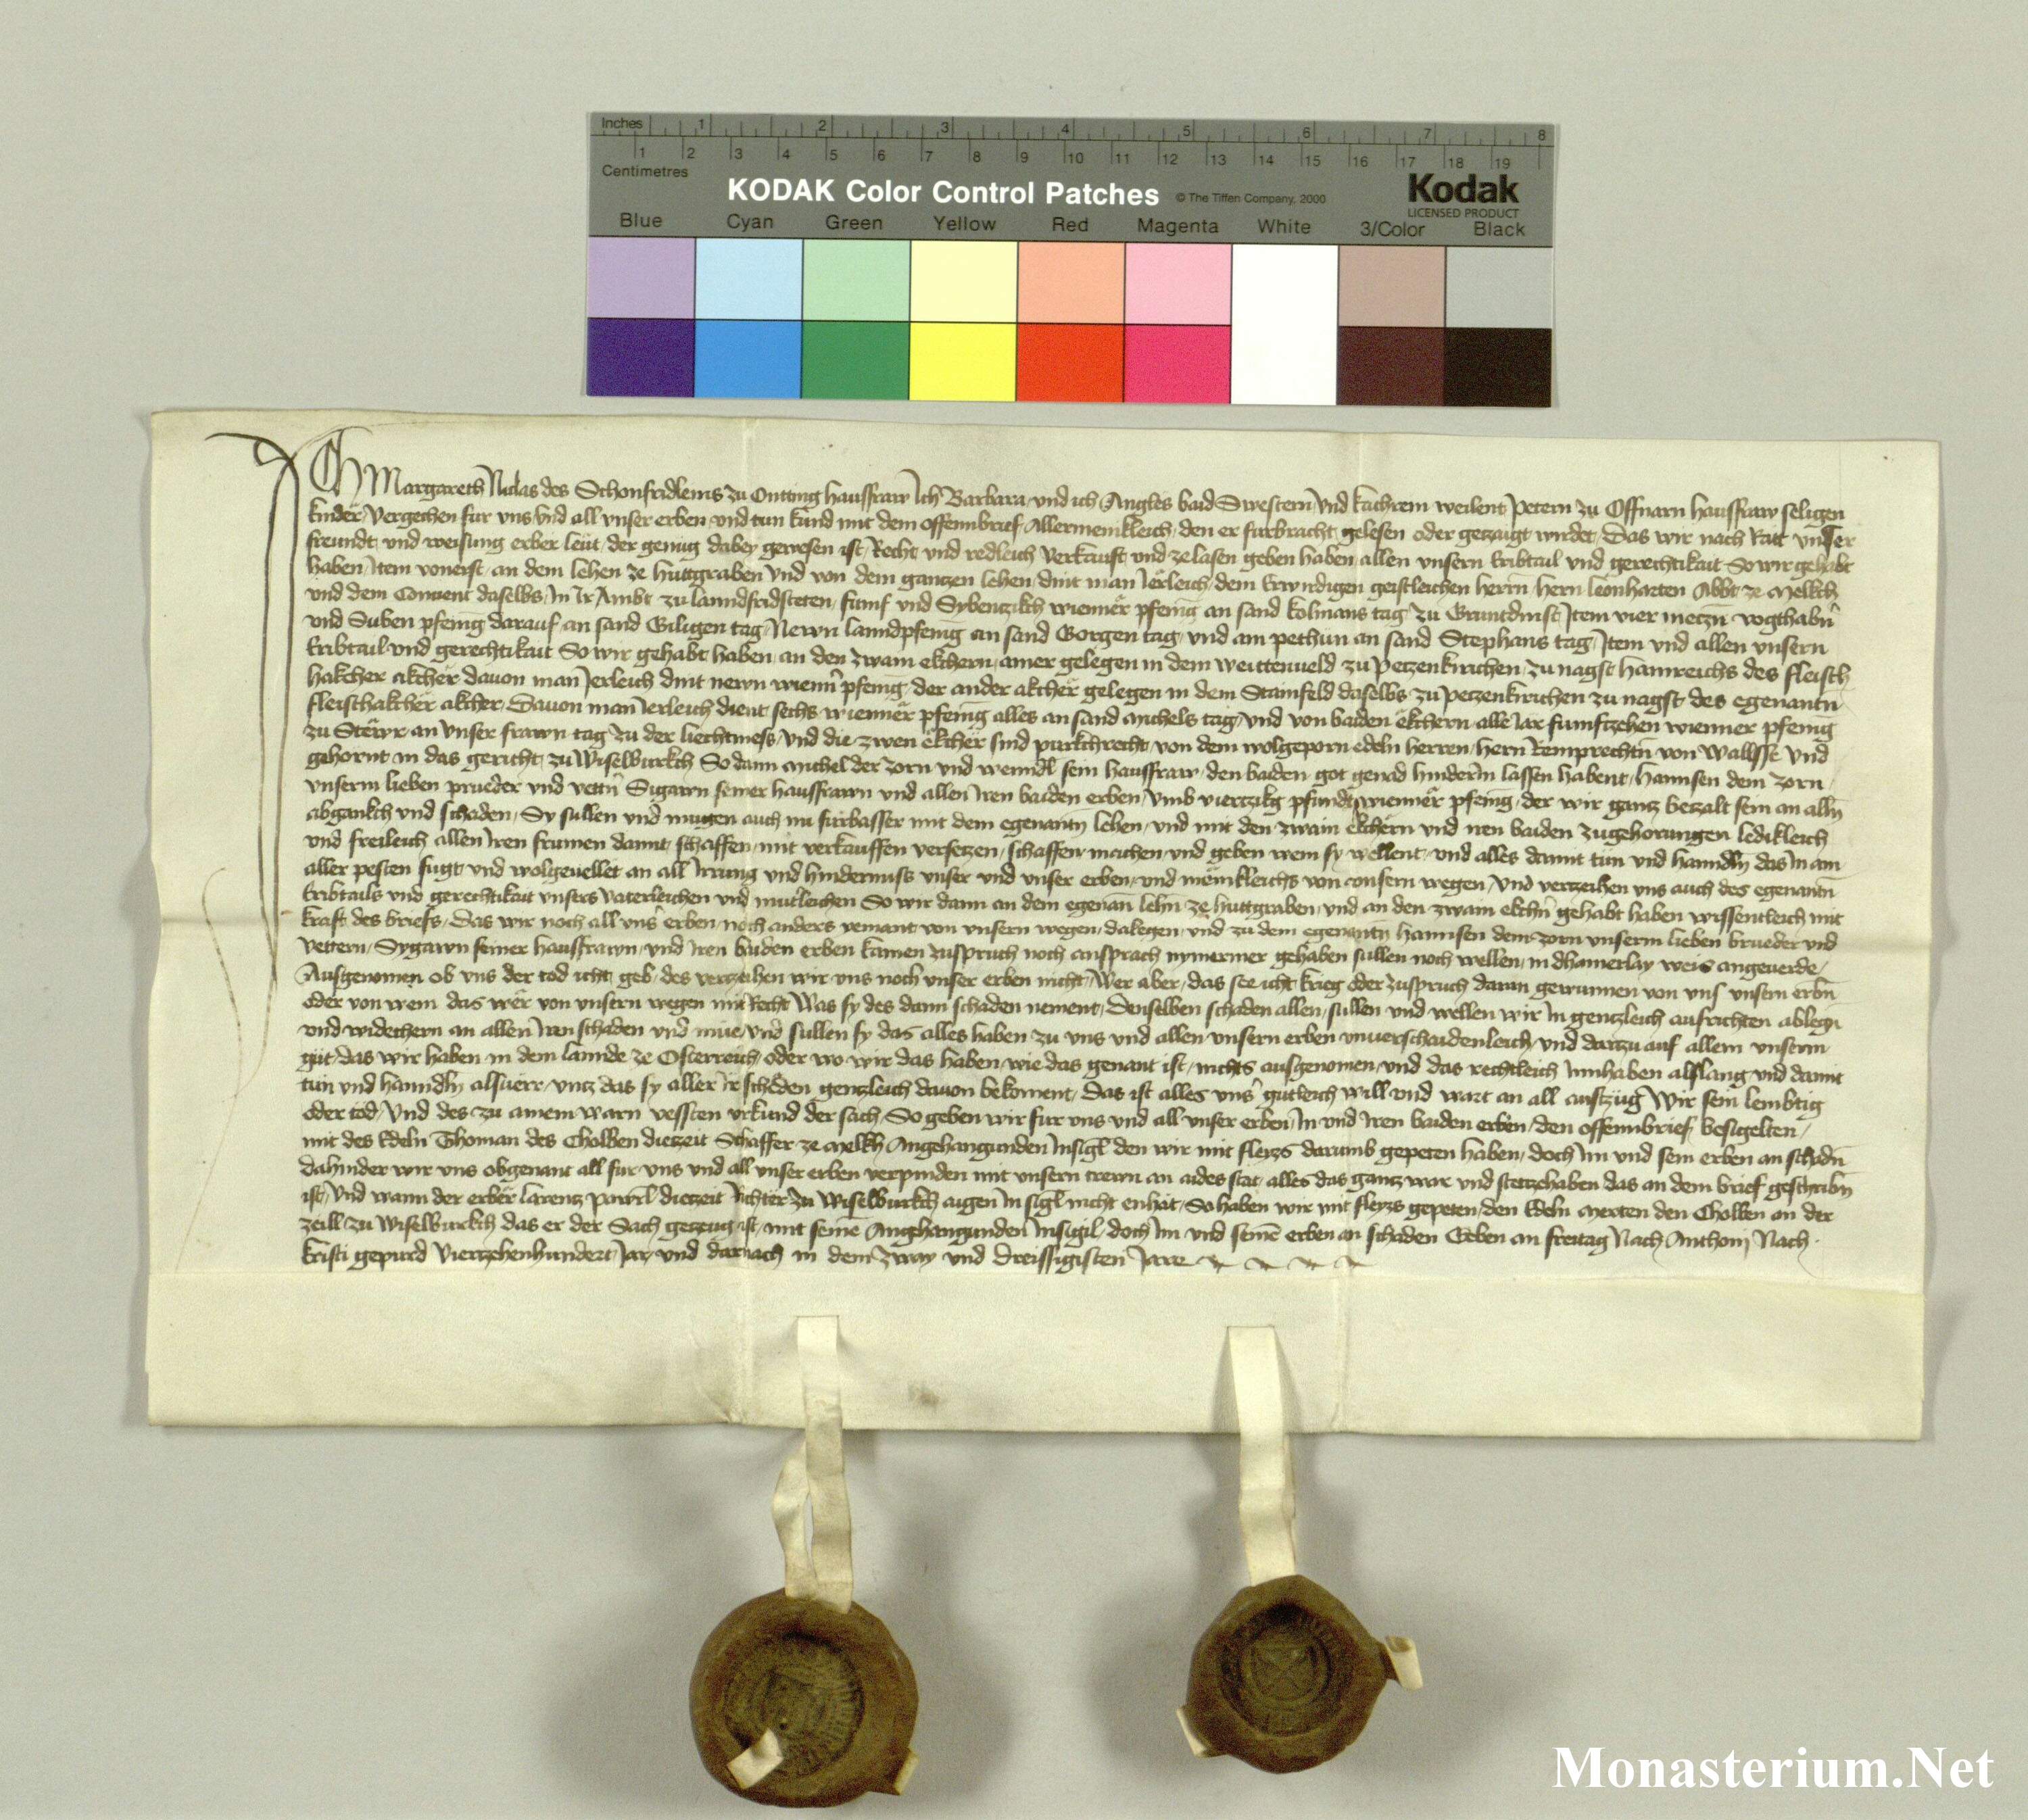 Inches 1 2 3 4 5 6 7 8
1 2 3 4 5 6 7 8 9 10 11 12 13 14 15 16 17 18 19
Centimetres
KODAK Color Control Patches © The Tiffen Company, 2000 Kodak
LICENSED PRODUCT
Blue Cyan Green Yellow Red Magenta White 3/Color Black
Ich Margareth Niclas des Schonfridleins zu Ontting hausfraw Ich Barbara und ich Angles baid Swestern und weilent Petern zu Offnarn hausfraw seligen
kinder vergechen fur uns und all unser erben und tun kund mit dem offennbrief Allermeinkleich den er furbracht gelesen oder getzaigt wirdet Das wir nach Ratt unser
freundt und weisung erber leut der genug dabey gewesen ist Recht und redleich verkauft und ze lasen geben haben allen unsern Eribtail und gerechtikait So wir gehabt
haben Item vonerst an dem lehen ze huttgraben und von dem gantzen lehen dint man Jerleich dem Erwirdigen geistleichen herrn hern leonharten Abbt ze Melkch
und dem Conuent daselbs In Ir Ambt zu lanndfridsteten funf und Sybentzikch wienner pfenig an sand kolmans tag zu Gruntdinst Item vier metzn vogthabn
und Suben pfenig darauf an sand Giligen tag Newn lanndpfenig an sand Gorgen tag und am pethun an sand Stephans tag Item und allen unsern
Eribtail und gerechtikait So wir gehabt haben an den zwain ekchern ainer gelegen in dem weittenueld zu Petzenkirichen zu nagst hainreichs des fleisch
hakcher akcher dauon man Jerleich dint newn wienn pfenig der ander akcher gelegen in dem Stainfeld daselbs zu Petzenkirichen zu nagst des egenantn
fleischakcher akcher Dauon man Jerleich dient sechs wienner pfenig alles an sand Michels tag und von baiden ekchern alle Jar funftzehen wienner pfenig
zu Stewr an unser frawn tag zu der liechtmess und die zwen ekcher sind purkchrecht von dem wolgeporn edeln herren hern Remprechtn von Wallsse und
gehornt in das gericht zu Wiselburkch So dann Michel der zorn und wenndl sein hausfraw den baiden got genad hinderm lassen habent hannsen dem zorn
unserm lieben prueder und vettn Sigawn seiner hausfrawn und allen Iren baiden erben umb viertzikg pfundt wienner pfenig der wir gantz betzalt sein an alln
abgankch und schaden Sy sullen und mugen auch nu furbasser mit dem egenantn lehen und mit den zwain ekchern und iren baiden zugehorungen ledikleich
und freileich allen Iren frumen damit schaffen mit verkauffen versetzen schaffen machen und geben wem sy wellent und alles damit tun und hanndln das In am
aller pesten fugt und wolgeuellet an all Irrung und hindernuss unser und unser erben und meinkleichs von unsern wegen und vertzeihen uns auch des egenantn
Eribtails und gerechtikait unsers vaterleichen und mutleichen So wir dann an dem egenan lehn ze huttgraben und an den zwain ekchn gehabt haben wissentleich mit
kraft des briefs Das wir noch all uns erben noch anders yemant von unsern wegen dalegen und zu dem egenantn hannsen dem zorn unserm lieben brueder und
vettern Sygawn seiner hausfrawn und Iren baiden erben kainen zuspruch noch ansprach nymermer gehaben sullen noch wellen in dhainerlay weis angeuerde
Ausgenomen ob uns der tod icht geb des vertzeihen wir uns noch unser erben nicht Wer aber das see icht krieg oder zuspruch daran gewunnen von uns unsern erbn
oder von wem das wer von unsern wegen mit Recht Was sy des dann schaden nement Denselben schaden allen sullen und wellen wir In gentzleich aufrichten ablegn
und widerchern an allen Iren schaden und mue und sullen sy das alles haben zu uns und allen unsern erben unuerschaidenleich und dartzu auf allem unserm
gut das wir haben in dem lannde ze Osterreich oder wo wir das haben wie das genant ist nichts ausgenomen und das rechtleich Innhaben alslang und damit
tun und hanndln alsuerr untz das sy aller ir scheden gentzleich dauon bekoment Das ist alles uns gutleich will und wart an all austzug Wir sein lembtig
oder tod Und des zu ainem warn vessten urkund der sach So geben wir fur uns und all unser erben In und Iren baiden erben den offennbrief besigelten
mit des Edeln Thoman des Cholben dietzeit Schaffer ze Melkh Angehangunden Insigl den wir mit fleyzs darumb gepeten haben doch Im und sein erben an schadn
dahinder wir uns obgenant all fur uns und all unser erben verpinden mit unsern trewn an aides stat alles das gantz war und stet ze haben das an dem brief geschribn
ist Und wann der erber larentz dietzeit Richter zu Wiselburkch aigen Insigl nicht enhat So haben wir mit fleyzs gepeten den Edeln Merten den Cholben an der
zeill zu Wiselburkch das er der Sach getzeug ist mit seine Anghangunden Insigil doch Im und seine erben an schaden Geben an freitag Nach Anthony Nach
kristi gepurd viertzehenhundert Jar und darnach in dem zway und dreissigisten Jare
Monasterium.Net